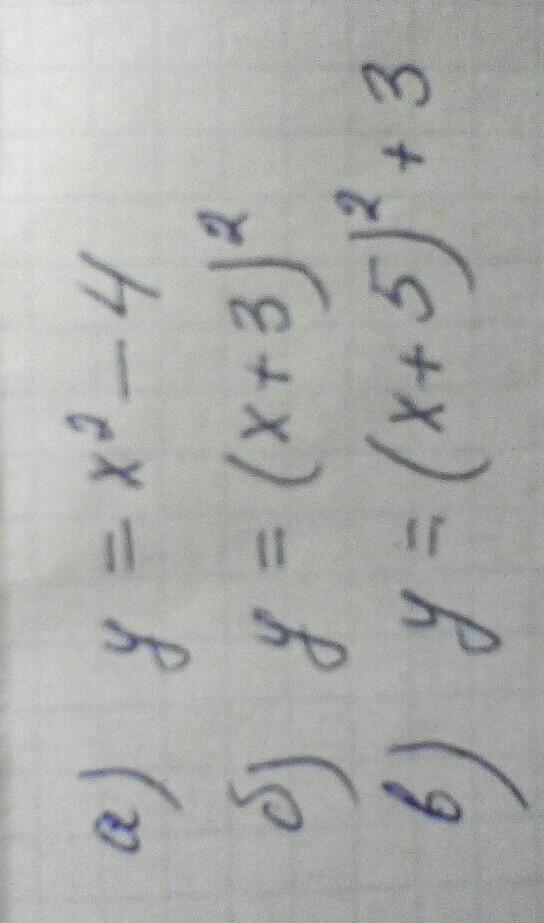 а) y = x² - 4
б) y = (x + 3)²
в) y = (x + 5)² + 3